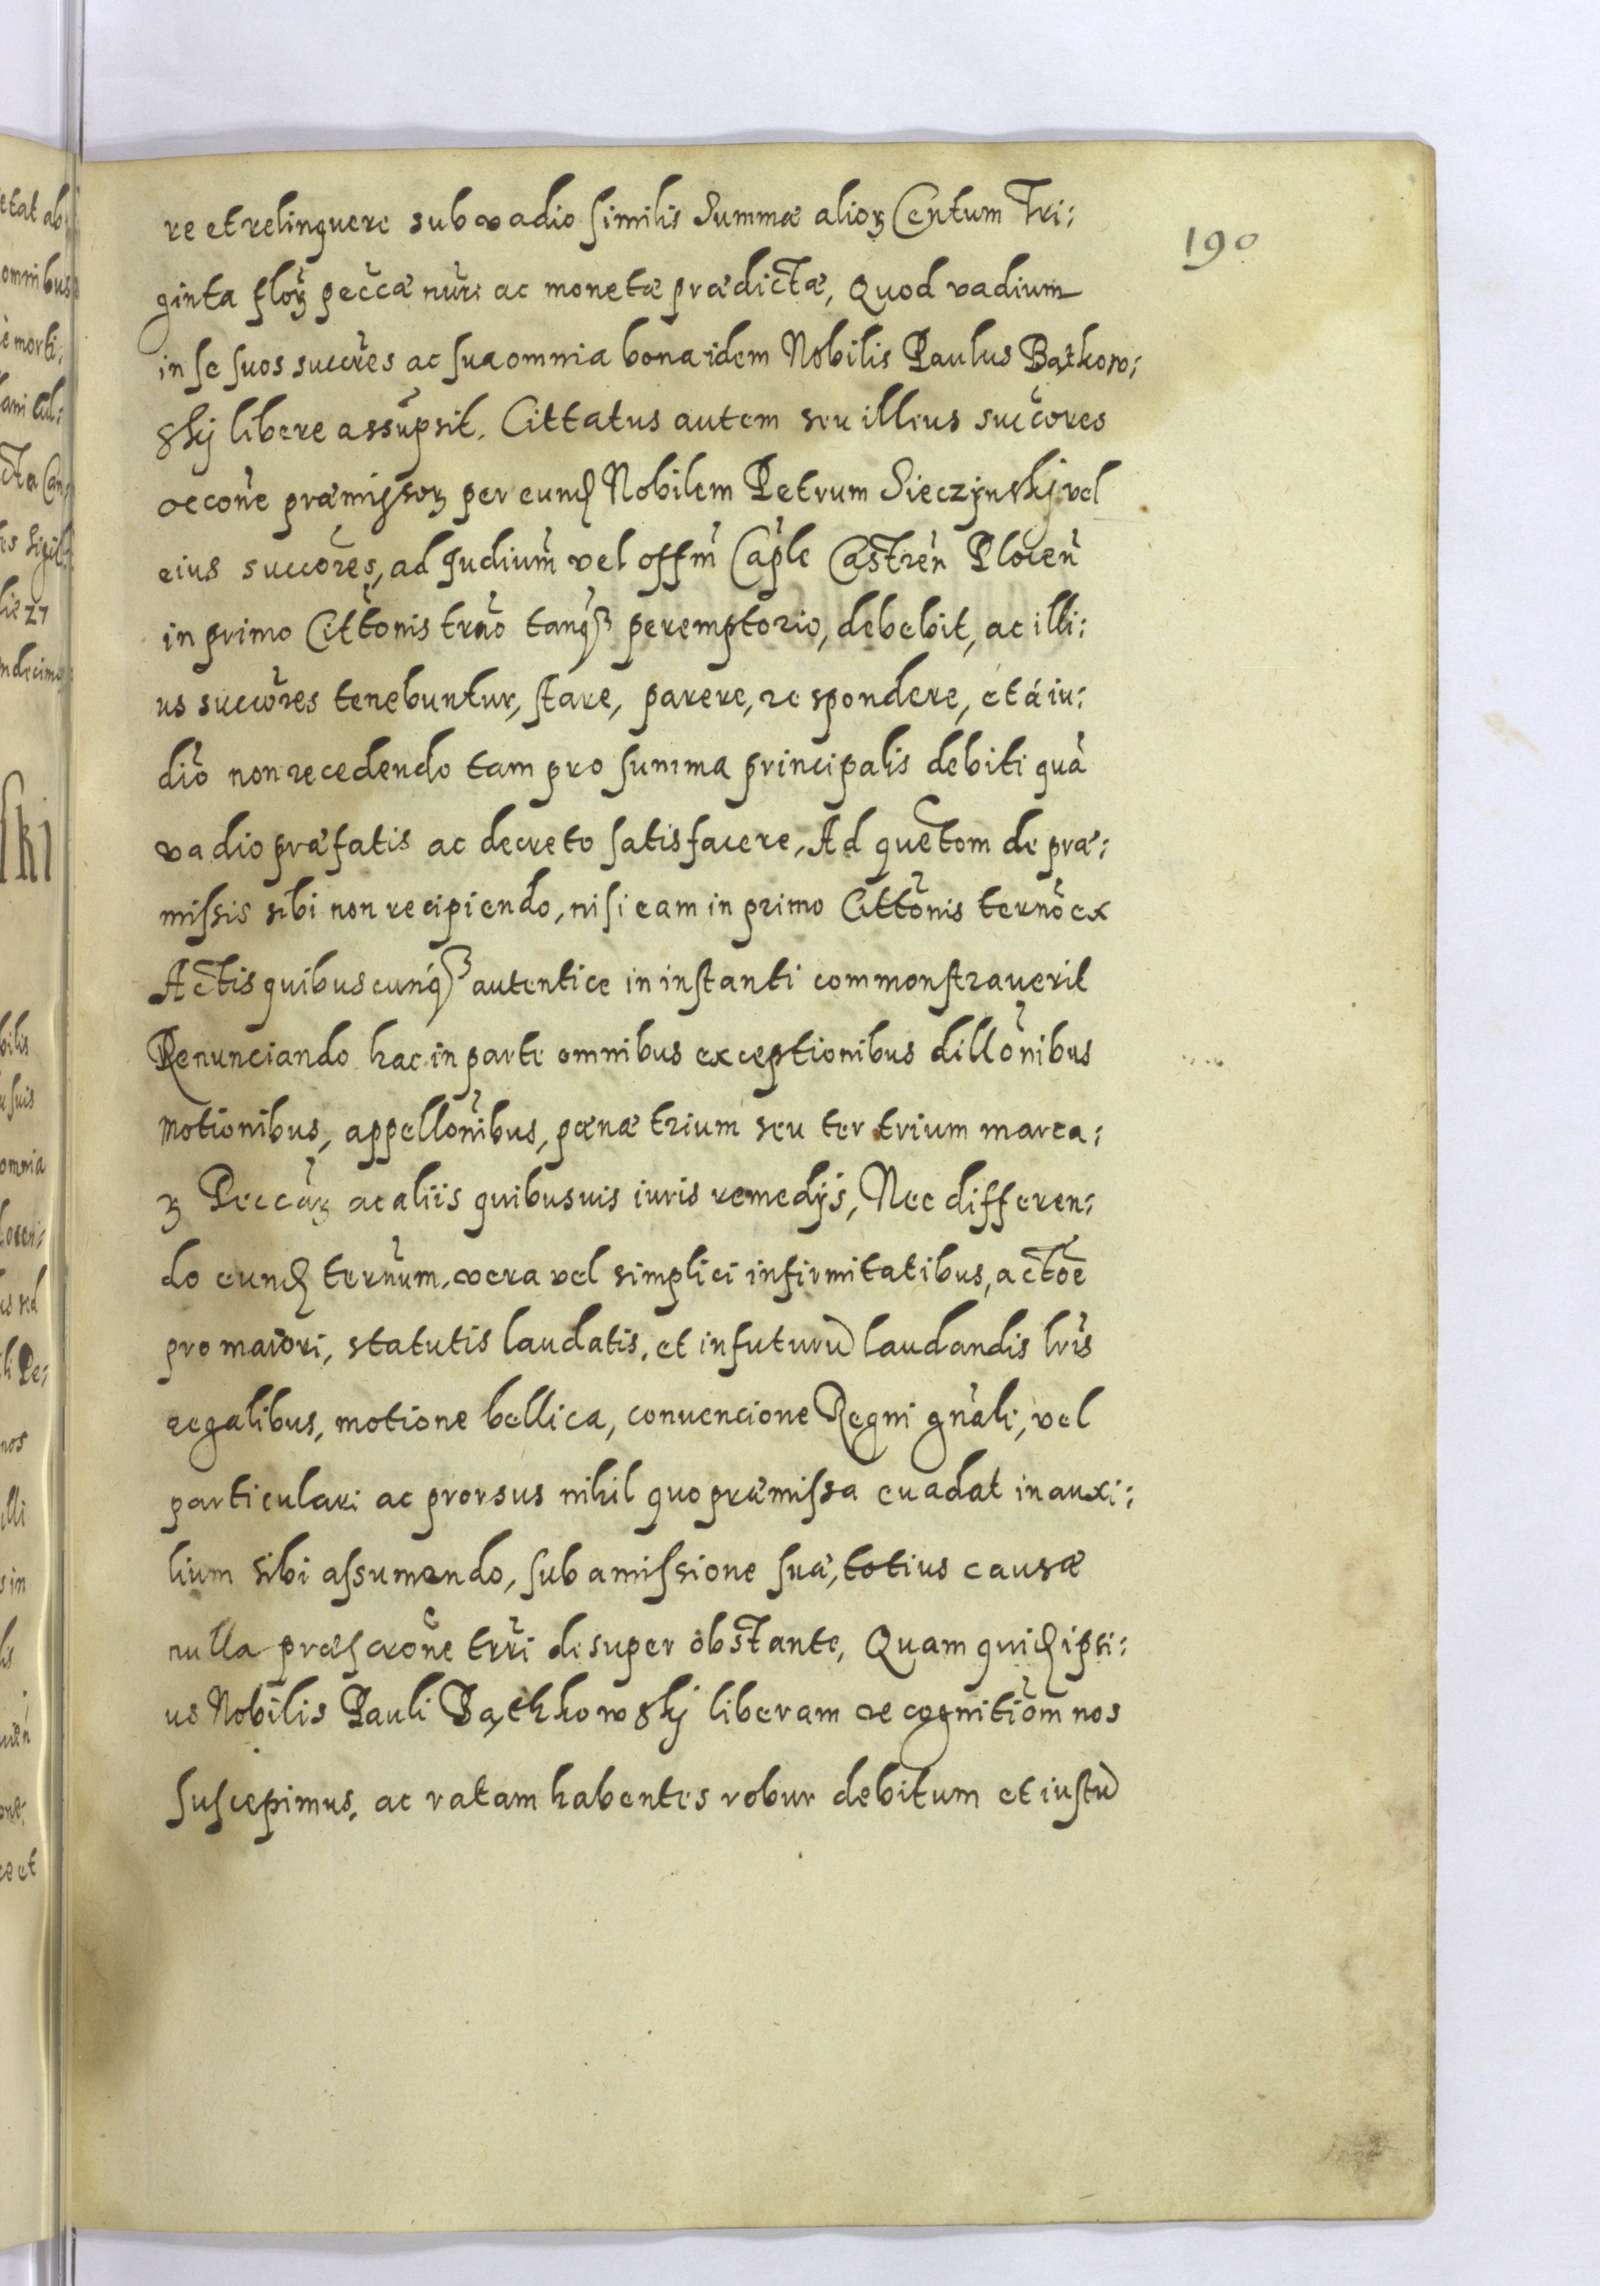 190
re et relinquere sub vadio similis Summæ alioꝝ Centum Tri:
ginta floꝝ peccæ nūri ac monetæ prædictæ, Quod vadium
in se suos succr̃es ac sua omnia bona idem Nobilis Paulus Bątkow:
skj libere assūpsit. Cittatus autem seu illius succores
occōne præmissoꝝ per eund Nobilem Petrum Sieczÿnskj vel
eius succores, ad Judiūm vel offm̃ Cap̃le Castreñ Ploceñ
in primo Cittōnis trño tanqȝ peremptorio, debebit, ac illi:
us succores tenebuntur, stare, parere, respondere, et á iu:
dīo non recedendo tam pro summa principalis debiti quā
vadio præfatis ac decreto satisfacere, Ad quetom de præ:
missis sibi non recipiendo, nisi eam in primo Cittōnis ternō ex
Actis quibuscunqȝ autentice in instanti commonstraverit
Renunciando hac in parte omnibus exceptionibus dillōnibus
motionibus, appellōnibus, pænæ trium seu ter trium marca:
ꝝ Peccaꝝ ac aliis quibusuis iuris remedÿs, Nec differen:
do eund ternūm vera vel simplici infirmitatibus, actōe
pro maiori, statutis laudatis, et in futurũ laudandis lr̃is
regalibus, motione bellica, convencione Regni gñali, vel
particulari ac prorsus nihil quo præmissa evadat in auxi:
lium sibi assumendo, sub amissione suæ, totius causæ
nulla præscrōne trr̃i desuper obstante, Quam quid ipsi:
us Nobilis Pauli Bąthkowskj liberam recognitiōm nos
suscepimus, ac ratam habentes robur debitum et iustũ